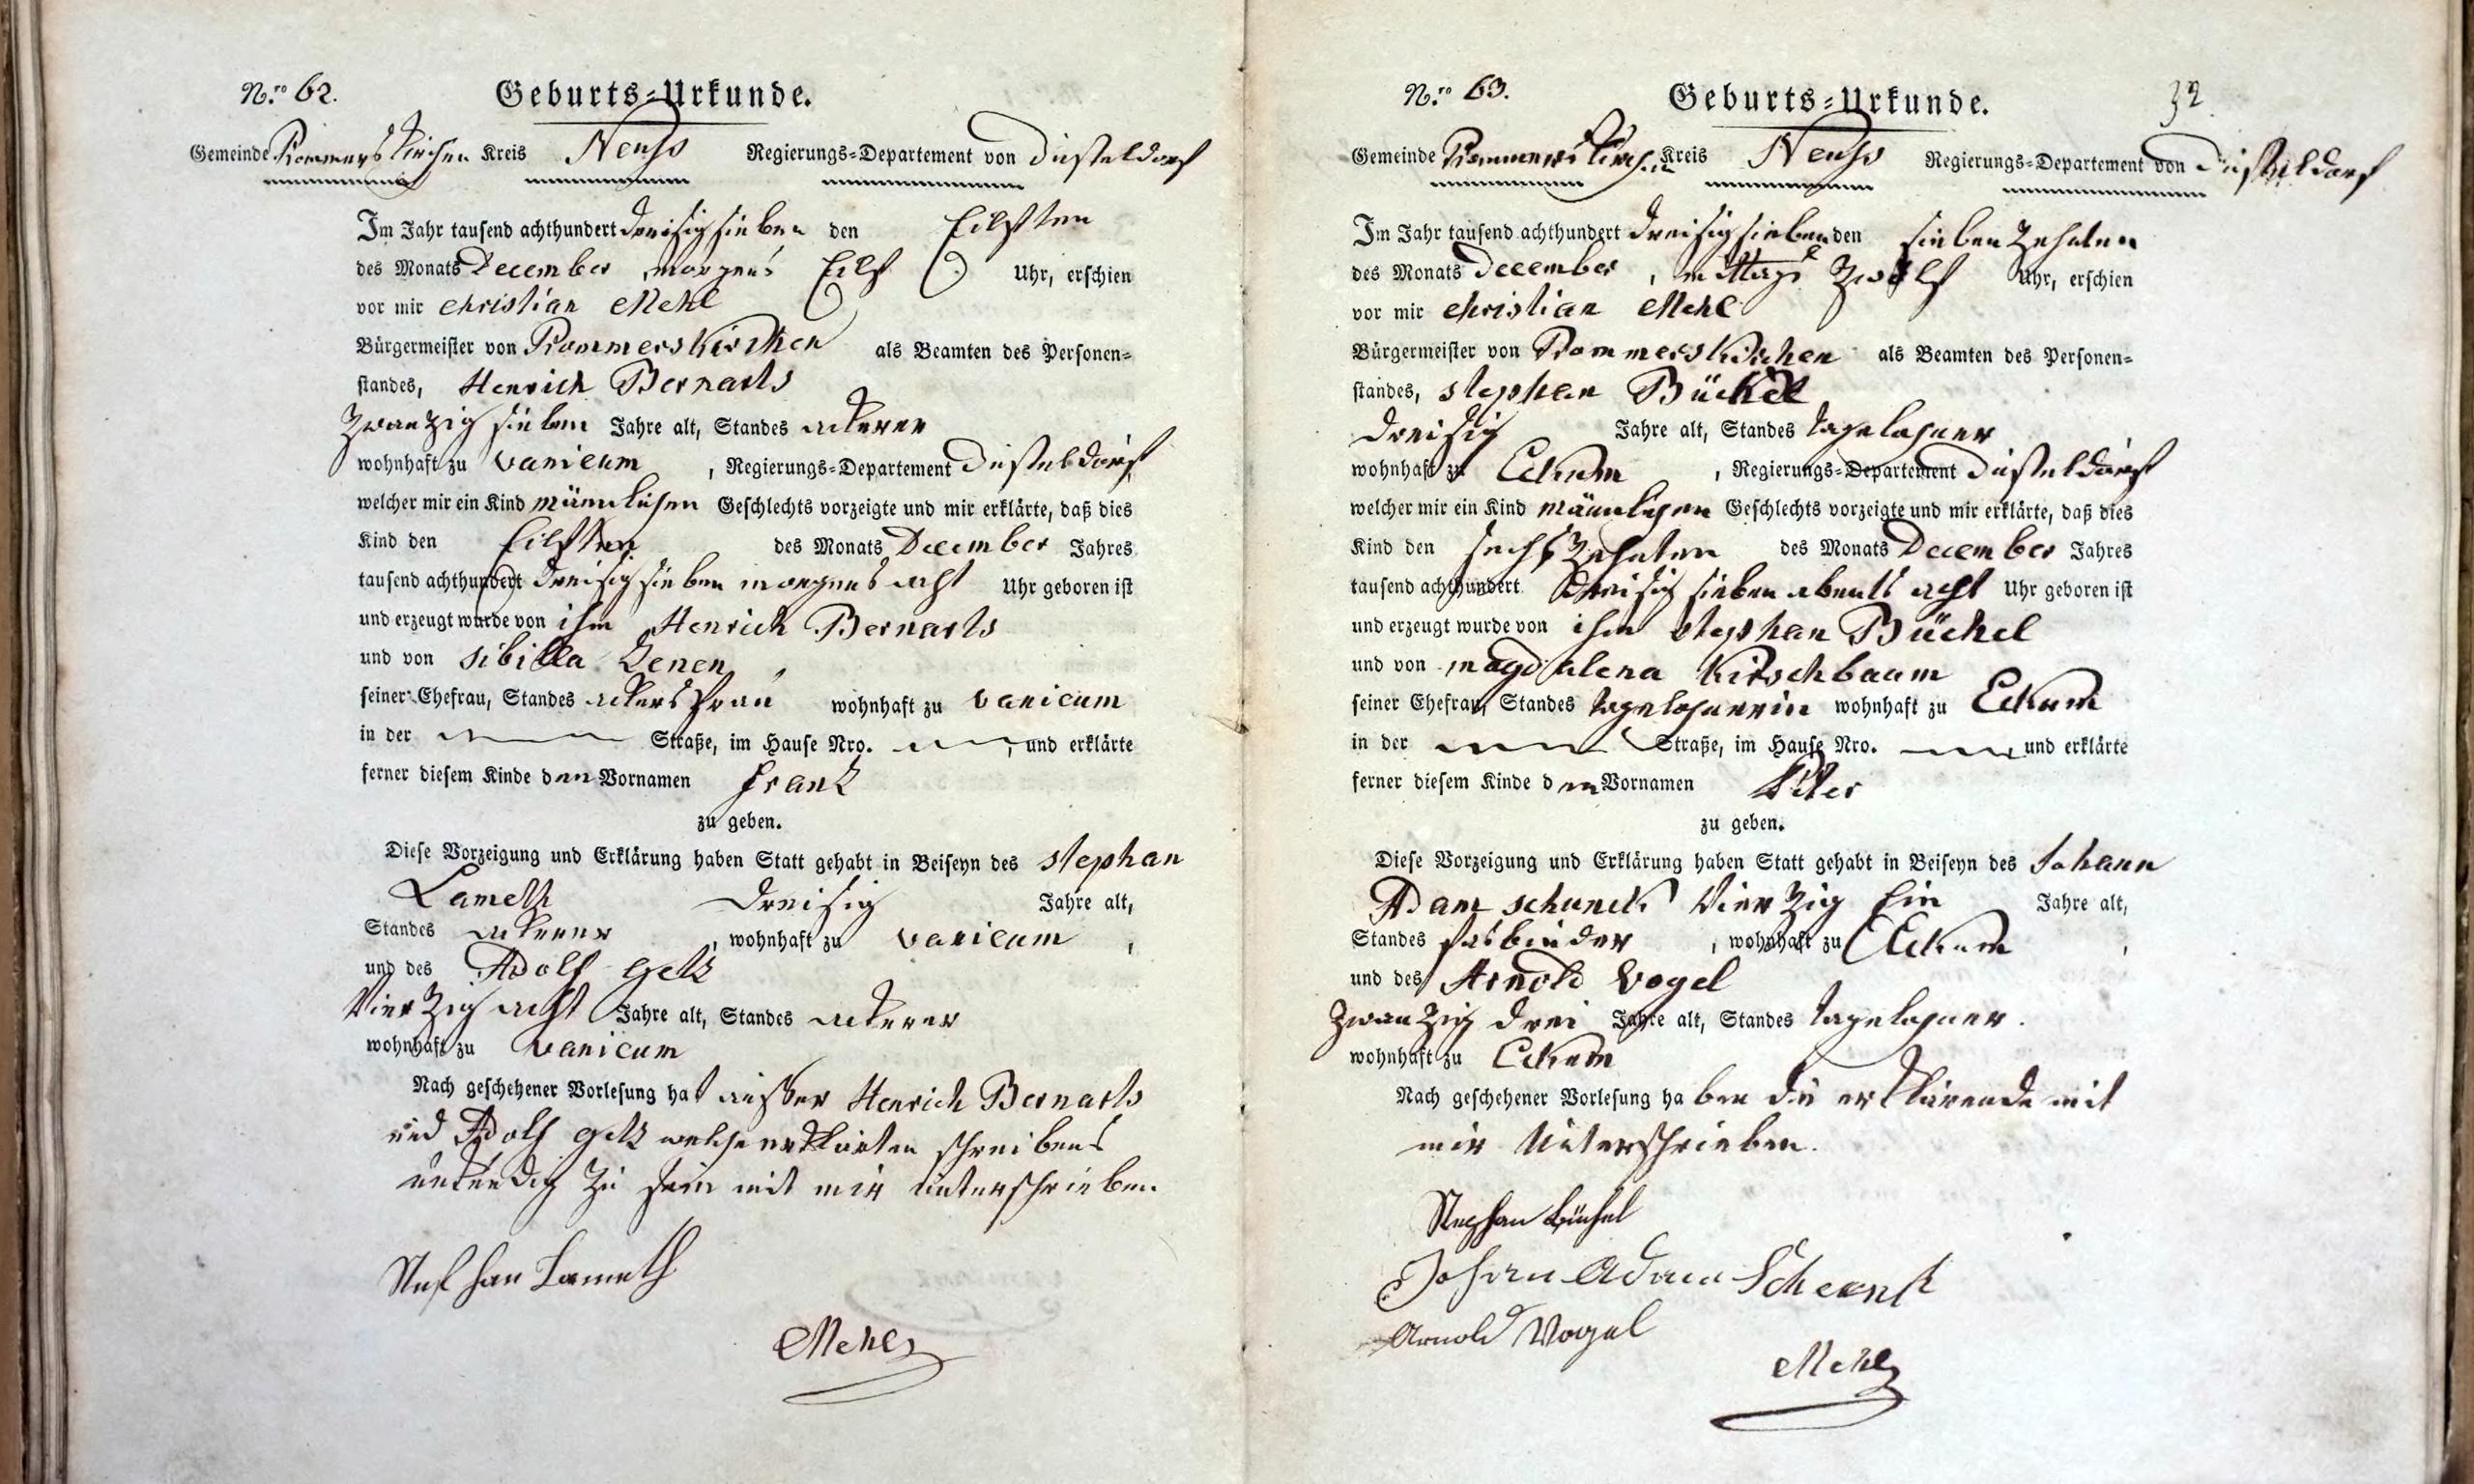 N.ro 62.
Geburts-Urkunde.
Gemeinde Rommerskirchen Kreis Neuss Regierungs-Departement von Düsseldorf
Im Jahr tausend achthundert dreisig sieben den Eilften
des Monats December, morgens Eilf Uhr, erschien
vor mir Christian Mehl
Bürgermeister von Rommerskirchen als Beamten des Personen-
standes, Henrich Bernarts
zwanzig sieben Jahre alt, Standes Ackerer
wohnhaft zu vanicum, Regierungs-Departement Düsseldorf
welcher mir ein Kind männlichen Geschlechts vorzeigte und mir erklärte, daß dies
Kind den Eilften des Monats December Jahres
tausend achthundert dreisig sieben morgens acht Uhr geboren ist
und erzeugt wurde von ihm Henrich Bernarts
und von Sibilla Zenen
seiner Ehefrau, Standes Ackersfrau wohnhaft zu vanicum
in der Straße, im Hause Nro. , und erklärte
ferner diesem Kinde den Vornamen Franz
zu geben.
Diese Vorzeigung und Erklärung haben Statt gehabt in Beiseyn des Stephan
Lameth dreisig Jahre alt,
Standes Ackerer, wohnhaft zu vanicum,
und des Adolf Getz
vierzig acht Jahre alt, Standes Ackerer
wohnhaft zu vanicum
Nach geschehener Vorlesung hat ausser Henrich Bernarts
und Adolf Getz welche erklärten schreibens
unkundig zu sein mit mir unterschrieben.
Stephan Lameth
Mehl
N.ro 63.
Geburts-Urkunde.
32
Gemeinde Rommerskirchen Kreis Neuss Regierungs-Departement von Düsseldorf
Im Jahr tausend achthundert dreisig sieben den siebenzehnten
des Monats December, mittags zwölf Uhr, erschien
vor mir Christian Mehl
Bürgermeister von Rommerskirchen als Beamten des Personen-
standes, Stephan Büchel
dreisig Jahre alt, Standes Tagelohner
wohnhaft zu Eckum, Regierungs-Departement Düsseldorf
welcher mir ein Kind männlichen Geschlechts vorzeigte und mir erklärte, daß dies
Kind den sechszehnten des Monats December Jahres
tausend achthundert dreisig sieben abents acht Uhr geboren ist
und erzeugt wurde von ihm Stephan Büchel
und von Magdalena Kirschbaum
seiner Ehefrau, Standes Tagelohnerin wohnhaft zu Eckum
in der Straße, im Hause Nro. und erklärte
ferner diesem Kinde den Vornamen Peter
zu geben.
Diese Vorzeigung und Erklärung haben Statt gehabt in Beiseyn des Johann
Adam Schunck vierzig Ein Jahre alt,
Standes Fasbinder, wohnhaft zu Eckum,
und des Arnold Vogel
zwanzig drei Jahre alt, Standes Tagelohner.
wohnhaft zu Eckum
Nach geschehener Vorlesung haben die erklärende mit
mir Unterschrieben.
Stephan Büchel
Johan Adam Schunk
Arnold Vogel
Mehl